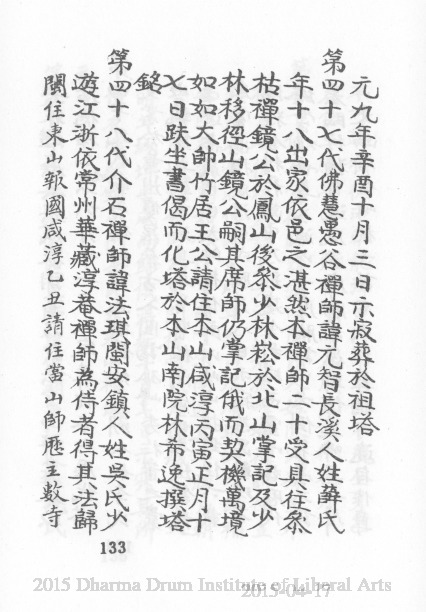 元九年辛酉十月三日示寂葬於祖塔
第四十七代佛慧愚谷禪師諱元智長溪人姓薛氏
年十八出家依邑之湛然本禪師二十受具往叅
枯禪鏡公於鳳山後叅少林崧於北山掌記及少
林移徑山鏡公嗣其席師仍掌記俄而契機萬境
如如大帥竹居王公請住本山咸淳丙寅正月十
七日趺坐書偈而化塔於本山南院林希逸撰塔
銘
第四十八代介石禪師諱法琪閩安鎮人姓吳氏少
遊江浙依常州華藏淳菴禪師為侍者得其法歸
閩住東山報國咸淳乙丑請住當山師歷主數寺
133
2015 Dharma Drum Institute of Liberal Arts
2015-04-17